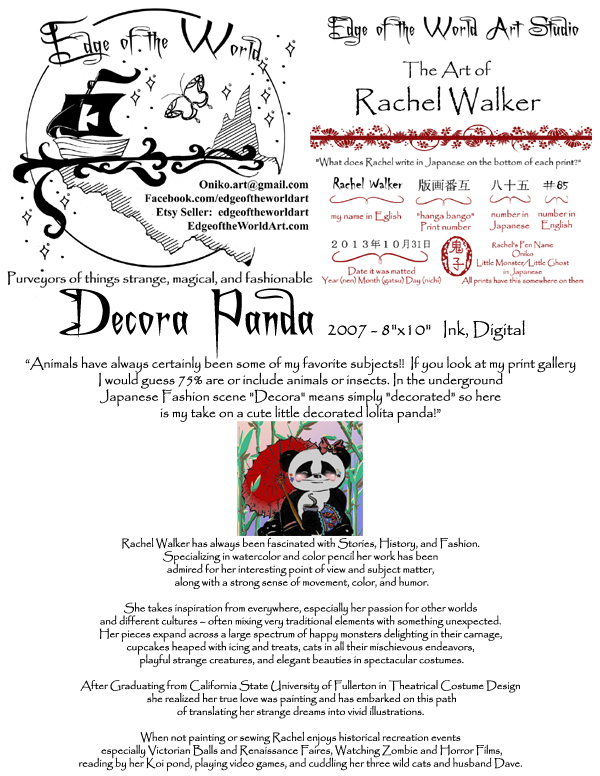 Edge of the World
Oniko.art@gmail.com
Facebook.com/edgeoftheworldart
Etsy Seller: edgeoftheworldart
EdgeoftheWorldArt.com
Purveyors of things strange, magical, and fashionable
Edge of the World Art Studio
The Art of
Rachel Walker
"What does Rachel write in Japanese on the bottom of each print?"
Rachel Walker 版画番互 八十五 #85
my name in Eglish
"hanga bango"
Print number
number in
Japanese
number in
English
2013年10月31日
Date it was matted
Year (nen) Month (gatsu) Day (nichi)
鬼子
Rachel's Pen Name
Oniko
Little Monster/Little Ghost
in Japanese
All prints have this somewhere on them
Decora Panda 2007 - 8"x10" Ink, Digital
"Animals have always certainly been some of my favorite subjects!! If you look at my print gallery
I would guess 75% are or include animals or insects. In the underground
Japanese Fashion scene "Decora" means simply "decorated" so here
is my take on a cute little decorated lolita panda!"
Rachel Walker has always been fascinated with Stories, History, and Fashion.
Specializing in watercolor and color pencil her work has been
admired for her interesting point of view and subject matter,
along with a strong sense of movement, color, and humor.
She takes inspiration from everywhere, especially her passion for other worlds
and different cultures – often mixing very traditional elements with something unexpected.
Her pieces expand across a large spectrum of happy monsters delighting in their carnage,
cupcakes heaped with icing and treats, cats in all their mischievous endeavors,
playful strange creatures, and elegant beauties in spectacular costumes.
After Graduating from California State University of Fullerton in Theatrical Costume Design
she realized her true love was painting and has embarked on this path
of translating her strange dreams into vivid illustrations.
When not painting or sewing Rachel enjoys historical recreation events
especially Victorian Balls and Renaissance Faires, Watching Zombie and Horror Films,
reading by her Koi pond, playing video games, and cuddling her three wild cats and husband Dave.